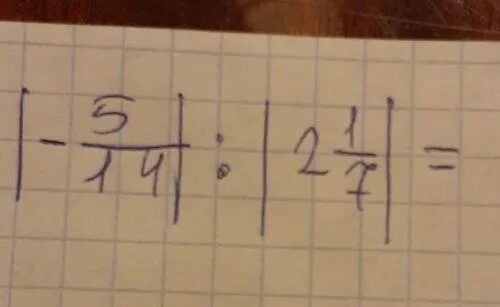 |-5/14| : |2 1/7| =